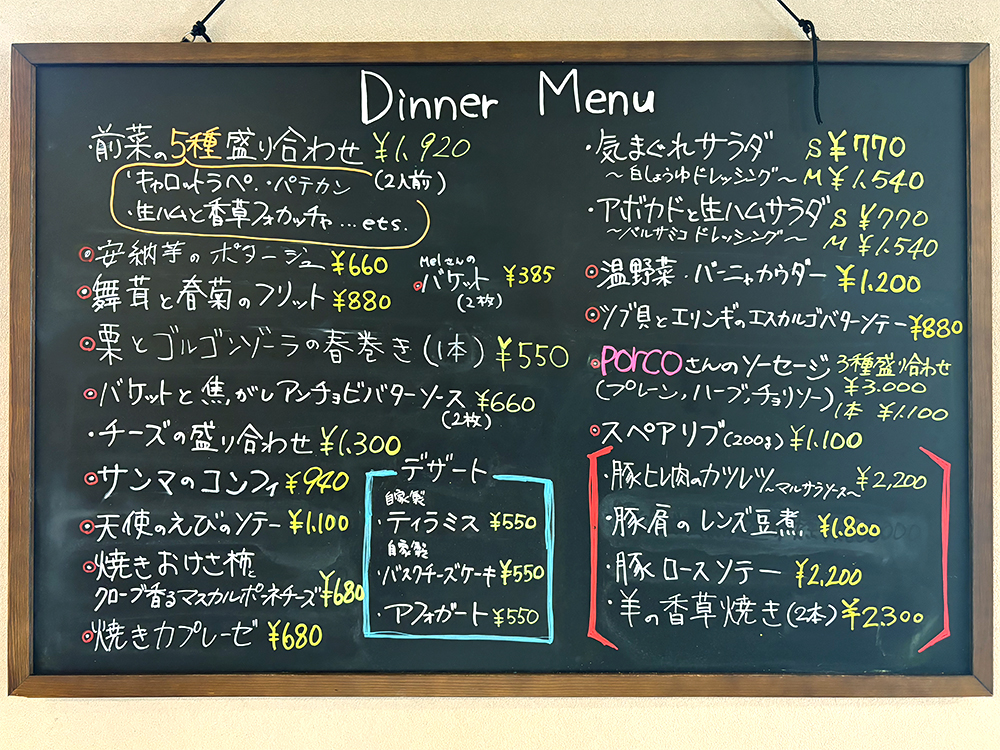 Dinner Menu
・前菜の5種盛り合わせ ¥1,920
(2人前)
・キャロットラペ. ・パテカン
・生ハムと香草フォカッチャ…ets.
・安納芋のポタージュ ¥660
・舞茸と春菊のフリット ¥880
Melさんの
・バケット ¥385
(2枚)
・栗とゴルゴンゾーラの春巻き(1本) ¥550
・バケットと焦がしアンチョビバターソース ¥660
(2枚)
・チーズの盛り合わせ ¥1,300
・サンマのコンフィ ¥940
・天使のえびのソテー ¥1,100
・焼きおけさ柿と
クローブ香るマスカルポーネチーズ ¥680
・焼きカプレーゼ ¥680
デザート
自家製
・ティラミス ¥550
自家製
・バスクチーズケーキ ¥550
・アフォガート ¥550
・気まぐれサラダ S ¥770
〜白しょうゆドレッシング〜 M ¥1,540
・アボカドと生ハムサラダ S ¥770
〜バルサミコドレッシング〜 M ¥1,540
・温野菜・バーニャカウダー ¥1,200
・ツブ貝とエリンギのエスカルゴバターソテー ¥880
・porcoさんのソーセージ 3種盛り合わせ
(プレーン,ハーブ,チョリソー) ¥3,000
1本 ¥1,100
・スペアリブ(200g) ¥1,100
・豚ヒレ肉のカツレツ 〜マルサラソース〜 ¥2,200
・豚肩のレンズ豆煮 ¥1,800
・豚ロースソテー ¥2,200
・羊の香草焼き(2本) ¥2,300